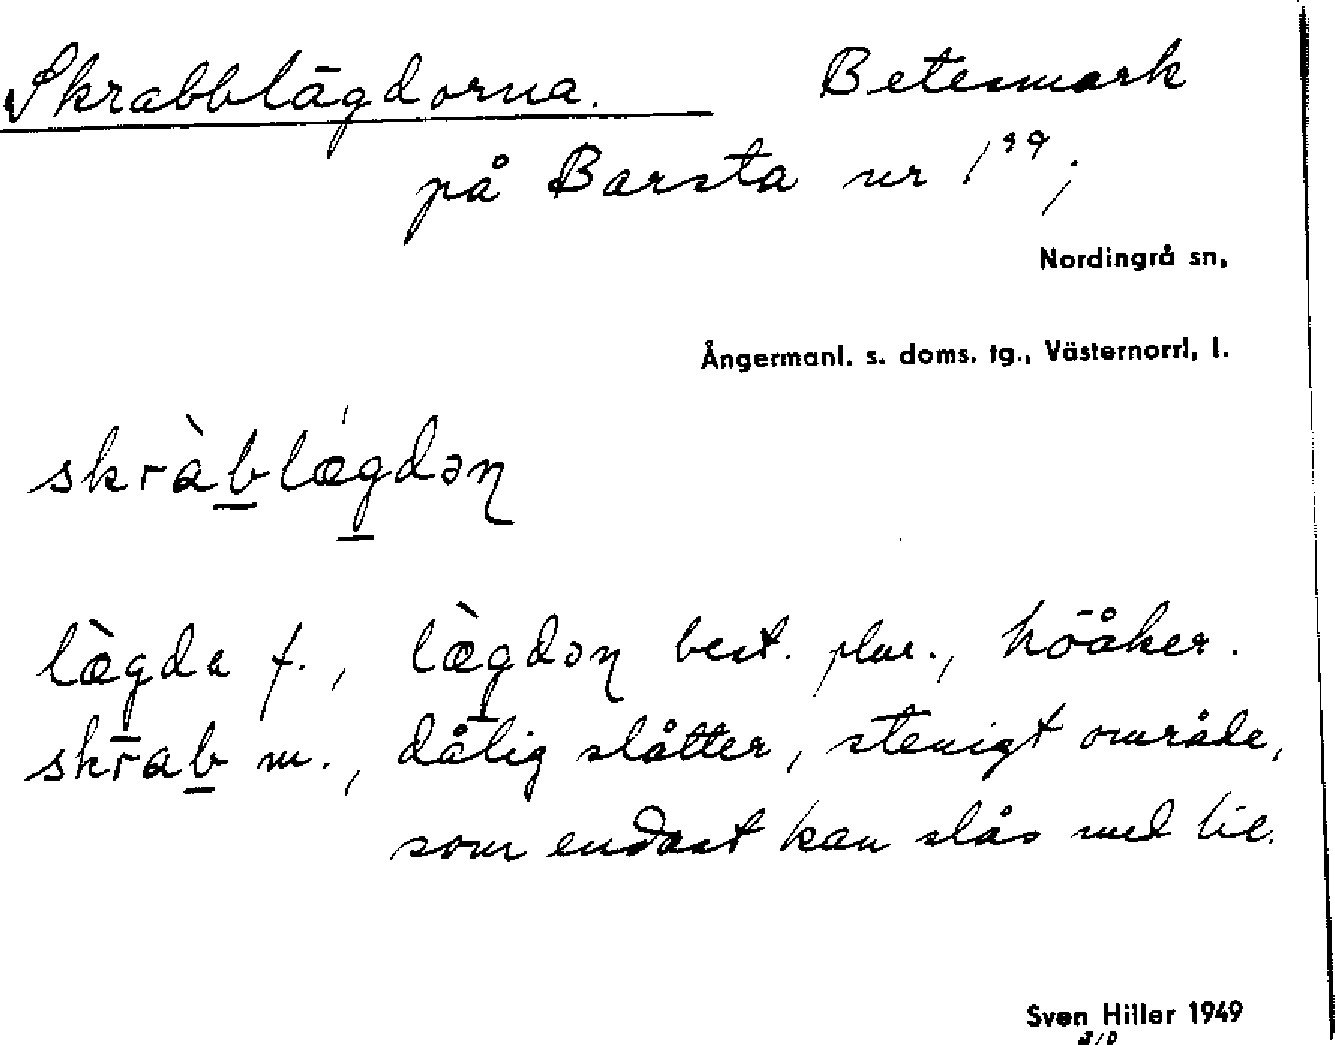 Skrabblägdorna. Betesmark
på Barsta nr 1³⁹;
Nordingrå sn,
Ångermanl. s. doms. tg., Västernorrl, l.
skràblægdəɳ
lægda f., lægdəɳ best. plur., höåker.
skrab m., dålig slåtter, stenigt område,
som endast kan slås med lie.
Sven Hiller 1949